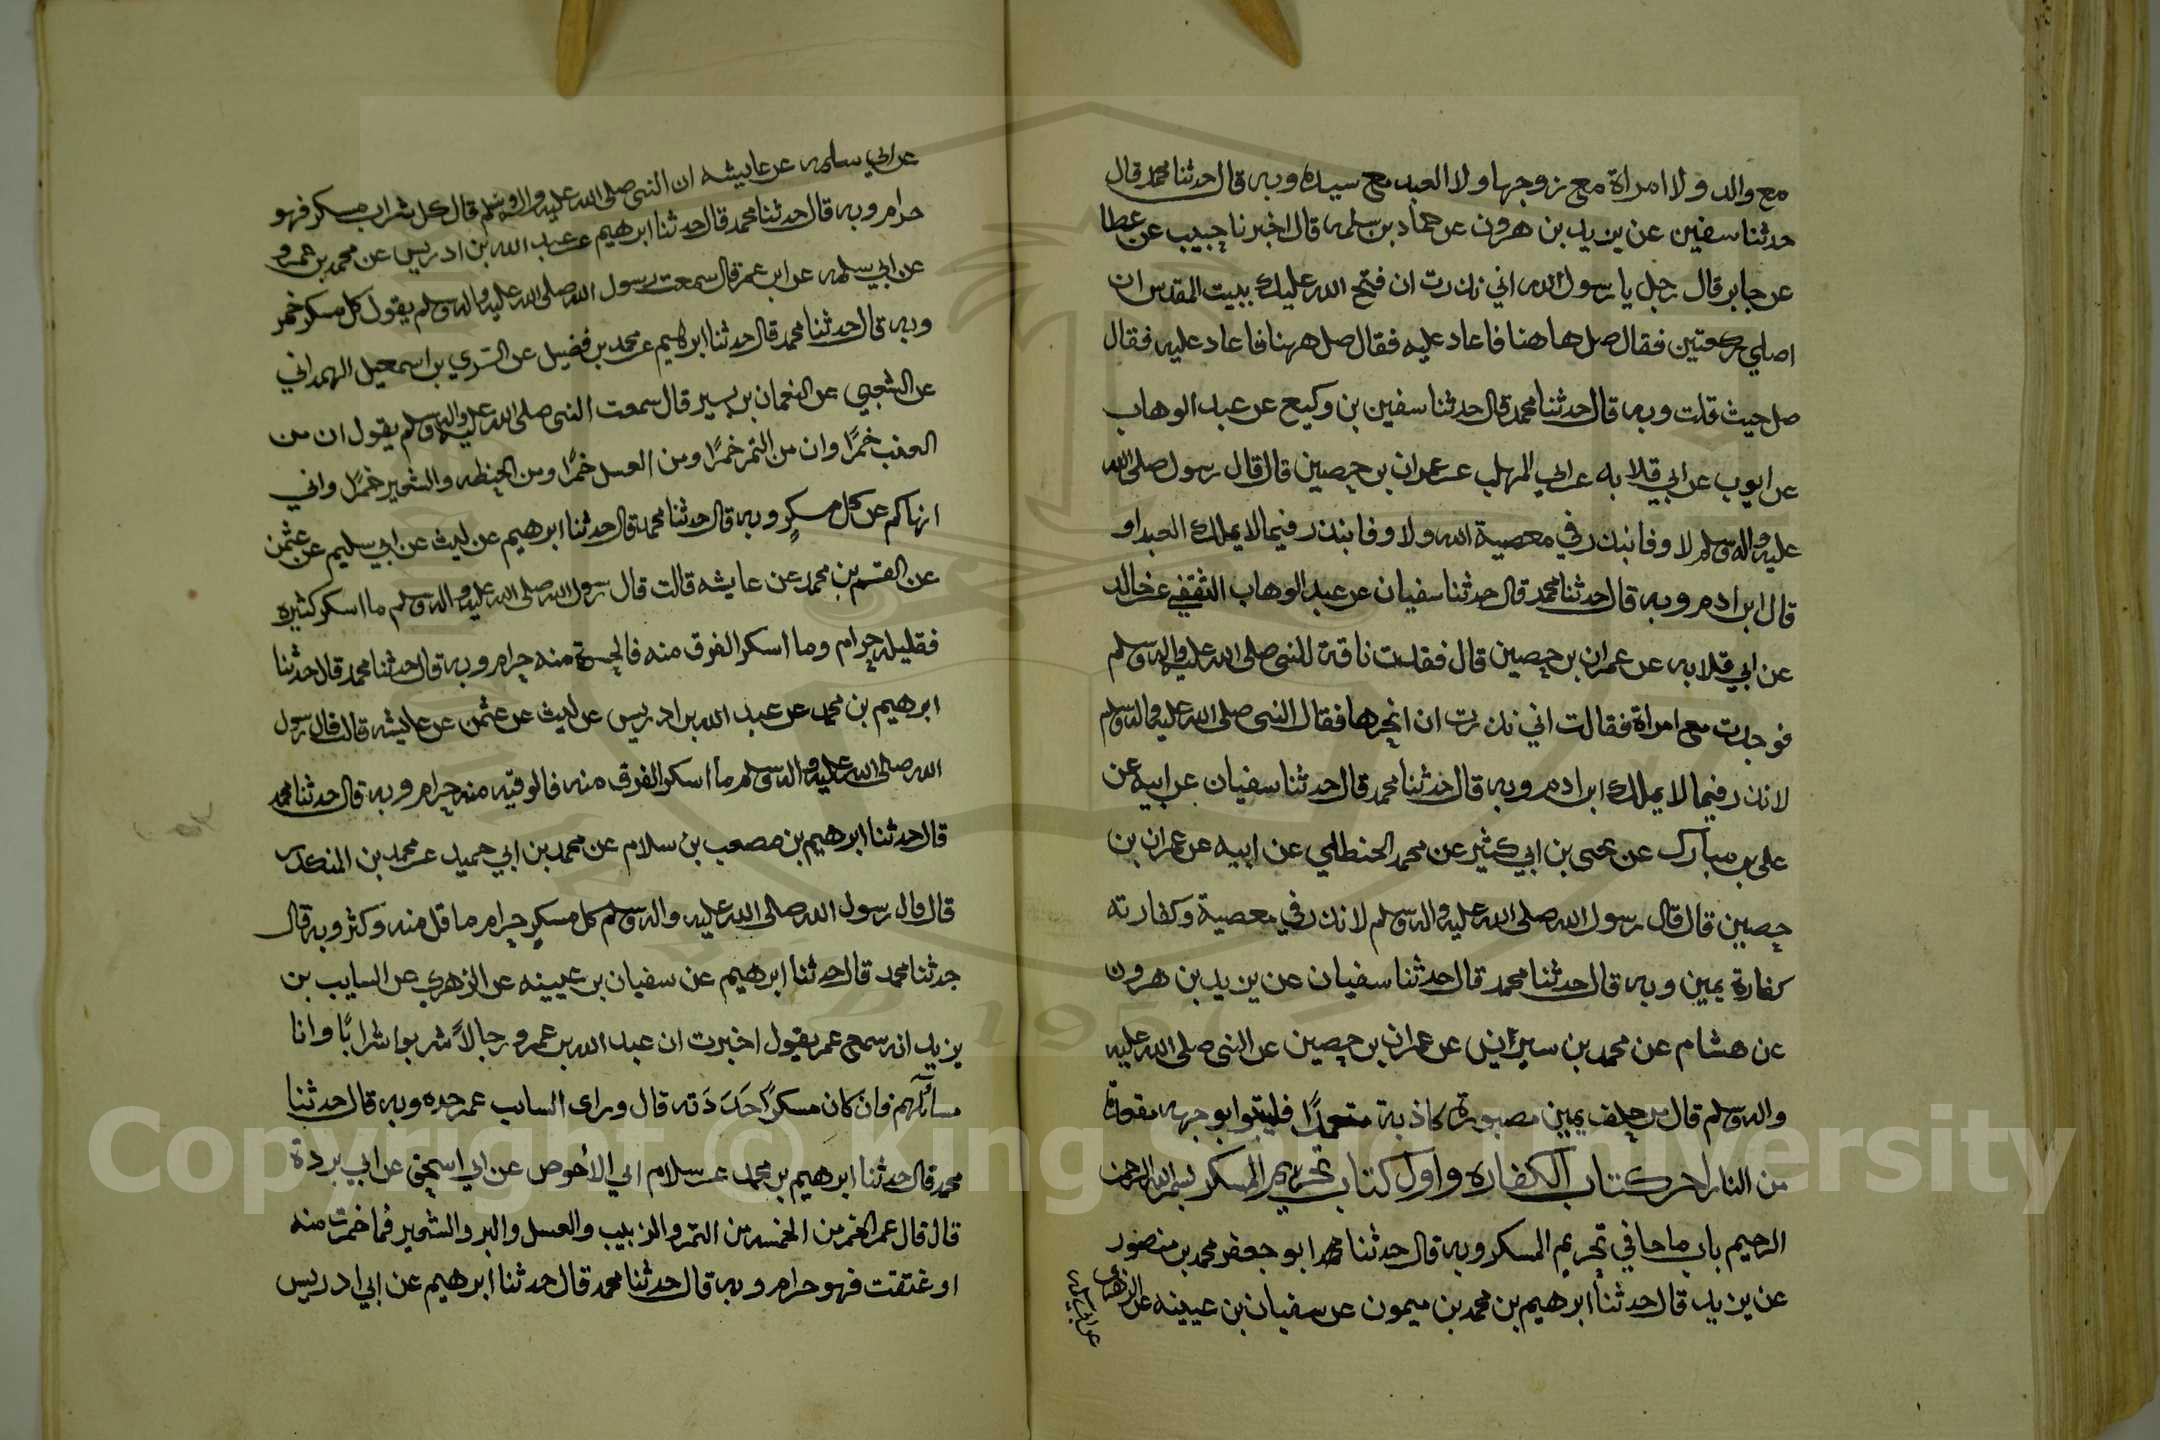 مع والد ولا امراة مع زوجها ولا العبد مع سيده وبه قال حدثنا محمد قال
حدثنا سفين عن يزيد بن هرون عن حماد بن سلمه قال اخبرنا حبيب عن عطا
عن جابر قال رجل يا رسول الله اني نذرت ان فتح الله عليك ببيت المقدس ان
اصلي ركعتين فقال صل هاهنا فاعاد عليه فقال صل ههنا فاعاد عليه فقال
صل حيث قلت وبه قال حدثنا محمد قال حدثنا سفين بن وكيع عن عبد الوهاب
عن ايوب عن ابي قلابه عن ابي المهلب عن عمران بن حصين قال قال رسول صلى الله
عليه واله وسلم لا وفا بنذر في معصية الله ولا وفا بنذر فيما لا يملك العبد او
قال ابن ادم وبه قال حدثنا محمد قال حدثنا سفيان عن عبد الوهاب الثقفي عن خالد
عن ابي قلابه عن عمران بن حصين قال فقدت ناقة للنبي صلى الله عليه واله وسلم
فوجدت مع امراة فقالت اني نذرت ان انحرها فقال النبي صلى الله عليه واله وسلم
لا نذر فيما لا يملك ابن ادم وبه قال حدثنا محمد قال حدثنا سفيان عن ابيه عن
علي بن مبارك عن يحيى بن ابي كثير عن محمد الحنطلي عن ابيه عن عمران بن
حصين قال قال رسول الله صلى الله عليه واله وسلم لا نذر في معصية وكفارته
كفارة يمين وبه قال حدثنا محمد قال حدثنا سفيان عن يزيد بن هرون
عن هشام عن محمد بن سيرين عن عمران بن حصين عن النبي صلى الله عليه
واله وسلم قال من حلف يمين مصبورة كاذبة متعمدًا فليتبوا بوجهه مقعده
من النار اخر كتاب الكفاره واول كتاب تحريم المسكر بسم الله الرحمن
الرحيم باب ما جا في تحريم المسكر وبه قال حدثنا محمد ابو جعفر محمد بن منصور
عن يزيد قال حدثنا ابرهيم بن محمد بن ميمون عن سفيان بن عيينه عن الزهري
عن ابي سلمه
عن ابي سلمه عن عايشه ان النبي صلى الله عليه واله وسلم قال كل شراب مسكر فهو
حرام وبه قال حدثنا محمد قال حدثنا ابرهيم عن عبد الله بن ادريس عن محمد بن عمرو
عن ابي سلمه عن ابن عمر قال سمعت رسول الله صلى الله عليه واله وسلم يقول كل مسكر خمر
وبه قال حدثنا محمد قال حدثنا ابرهيم عن محمد بن فضيل عن السري بن اسمعيل الهمداني
عن الشعبي عن النعمان بن بسير قال سمعت النبي صلى الله عليه واله وسلم يقول ان من
العنب خمرًا وان من التمر خمرًا ومن العسل خمرًا ومن الحنطه والشعير خمرًا واني
انهاكم عن كل مسكرٍ وبه قال حدثنا محمد قال حدثنا ابرهيم عن ليث عن ابي سليم عن عثمن
عن القسم بن محمد عن عايشه قالت قال رسول الله صلى الله عليه واله وسلم ما اسكر كثيره
فقليله حرام وما اسكر الفرق منه فالحسوة منه حرام وبه قال حدثنا محمد قال حدثنا
ابرهيم بن محمد عن عبد الله بن ادريس عن ليث عن عثمن عن عايشه قالت قال رسول
الله صلى الله عليه واله وسلم ما اسكر الفرق منه فالوقيه منه حرام وبه قال حدثنا محمد
قال حدثنا ابرهيم بن مصعب بن سلام عن محمد بن ابي حميد عن محمد بن المنكدر
قال قال رسول الله صلى الله عليه واله وسلم كل مسكرٍ حرام ما قل منه وكثر وبه قال
حدثنا محمد قال حدثنا ابرهيم عن سفيان بن عيينه عن الزهري عن السايب بن
يزيد انه سمع عمر يقول اخبرت ان عبد الله بن عمرو رجالاً شربوا شرابًا وانا
سائلهم فان كان مسكرًا حددته قال وراى السايب عمر حده وبه قال حدثنا
محمد قال حدثنا ابرهيم بن محمد عن سلام ابي الأحوص عن ابي اسحق عن ابي بردة
قال قال عمر الخمر من الخمسه من التمر والزبيب والعسل والبر والشعير فما خمرت منه
او غتقت فهو حرام وبه قال حدثنا محمد قال حدثنا ابرهيم عن ابي ادريس
Copyright © King Saud University
1957